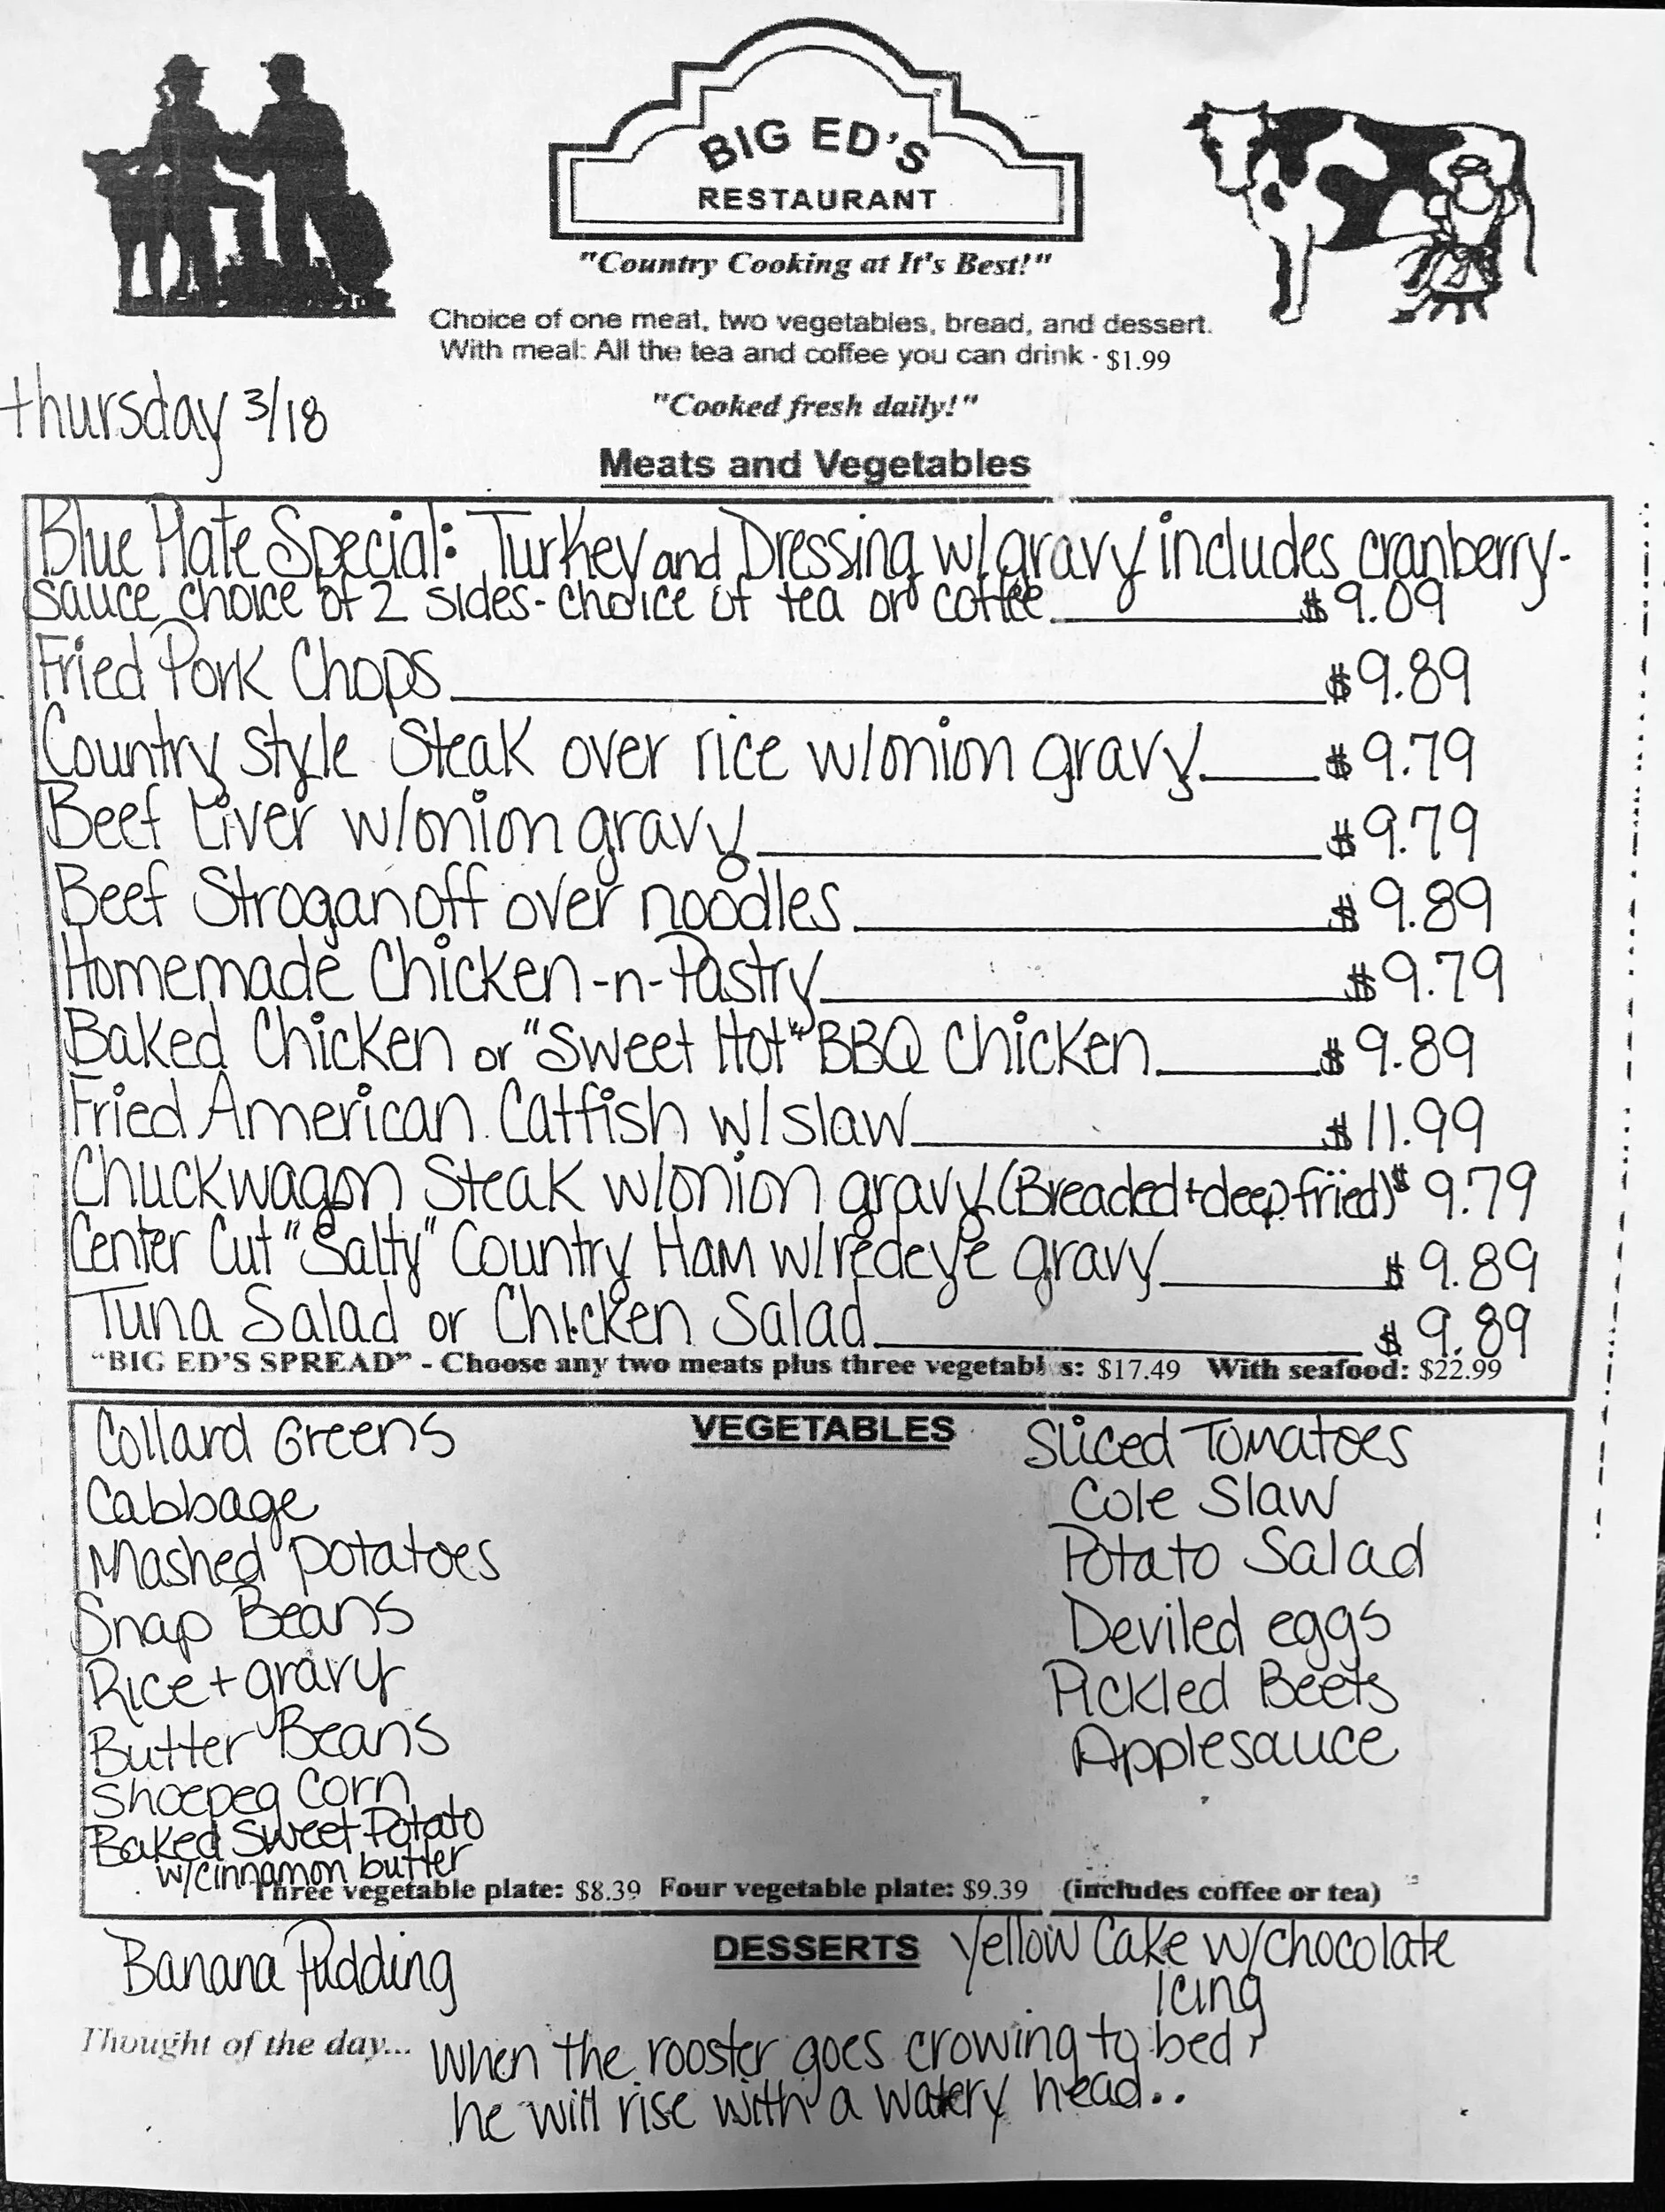 BIG ED'S
RESTAURANT
"Country Cooking at It's Best!"
Choice of one meat, two vegetables, bread, and dessert.
With meal: All the tea and coffee you can drink - $1.99
Thursday 3/18
"Cooked fresh daily!"
Meats and Vegetables
Blue Plate Special: Turkey and Dressing w/gravy includes cranberry-
sauce choice of 2 sides - choice of tea or coffee $9.09
Fried Pork Chops $9.89
Country style Steak over rice w/onion gravy $9.79
Beef Liver w/onion gravy $9.79
Beef Stroganoff over noodles $9.89
Homemade Chicken-n-Pastry $9.79
Baked Chicken or "Sweet Hot" BBQ Chicken $9.89
Fried American Catfish w/slaw $11.99
Chuckwagon Steak w/onion gravy (Breaded + deep fried) $9.79
Center Cut "Salty" Country Ham w/redeye gravy $9.89
Tuna Salad or Chicken Salad $9.89
"BIG ED'S SPREAD" - Choose any two meats plus three vegetables: $17.49 With seafood: $22.99
VEGETABLES
Collard Greens
Cabbage
Mashed Potatoes
Snap Beans
Rice + gravy
Butter Beans
Shoepeg Corn
Baked Sweet Potato
w/cinnamon butter
Sliced Tomatoes
Cole Slaw
Potato Salad
Deviled eggs
Pickled Beets
Applesauce
Three vegetable plate: $8.39 Four vegetable plate: $9.39 (includes coffee or tea)
DESSERTS
Banana Pudding
Yellow Cake w/chocolate
Icing
Thought of the day... When the rooster goes crowing to bed,
he will rise with a watery head..